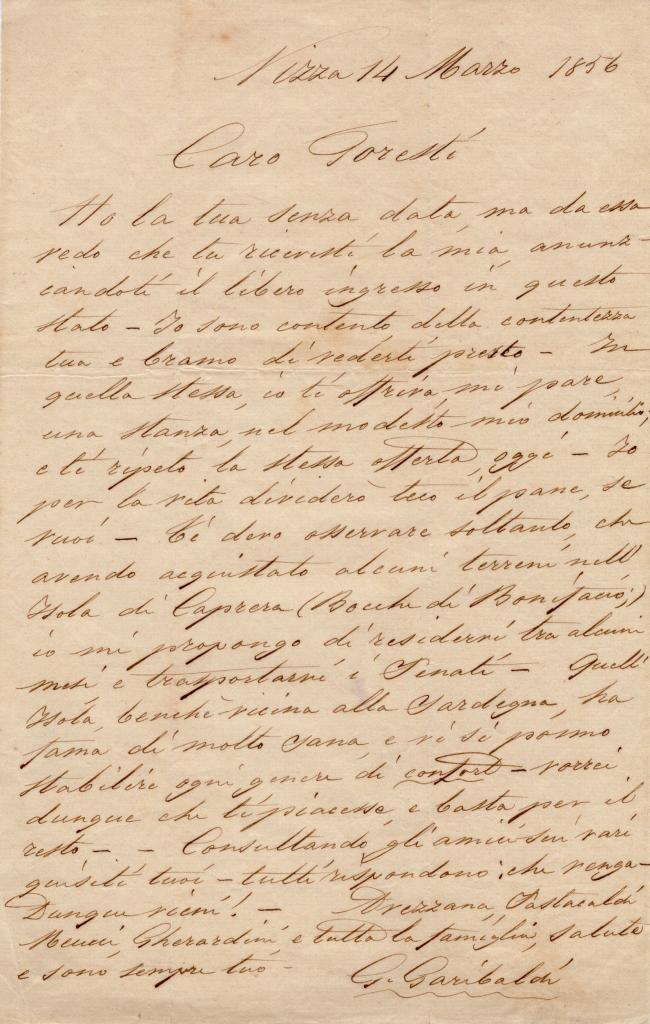 Nizza 14 Marzo 1856
Caro Foresti
Ho la tua senza data, ma da essa
vedo che tu ricevesti la mia, anunz-
iandoti il libero ingresso in questo
stato – Io sono contento della contentezza
tua e bramo di vederti presto – In
quella stessa, io ti offriva, mi pare,
una stanza, nel modesto mio domicilio;
e ti ripeto la stessa offerta, oggi – Io
per la vita dividerò teco il pane, se
vuoi – Ti devo osservare soltanto, che
avendo acquistato alcuni terreni nell'
Isola di Caprera (Bocche di Bonifacio;)
io mi propongo di risiedervi tra alcuni
mesi e trasportarvi i Penati – Quell'
Isola, benchè vicina alla Sardegna, ha
fama di molto sana, e vi si ponno
stabilire ogni genere di confort – vorrei
dunque che ti piacesse, e basta per il
resto – – Consultando, gli amici sui
quisiti tuoi – tutti rispondono: che venga
Dunque vieni! – Avezzana, Pastacaldi
Meucci, Gherardini, e tutta la famiglia, salute
e sono sempre tuo
G. Garibaldi